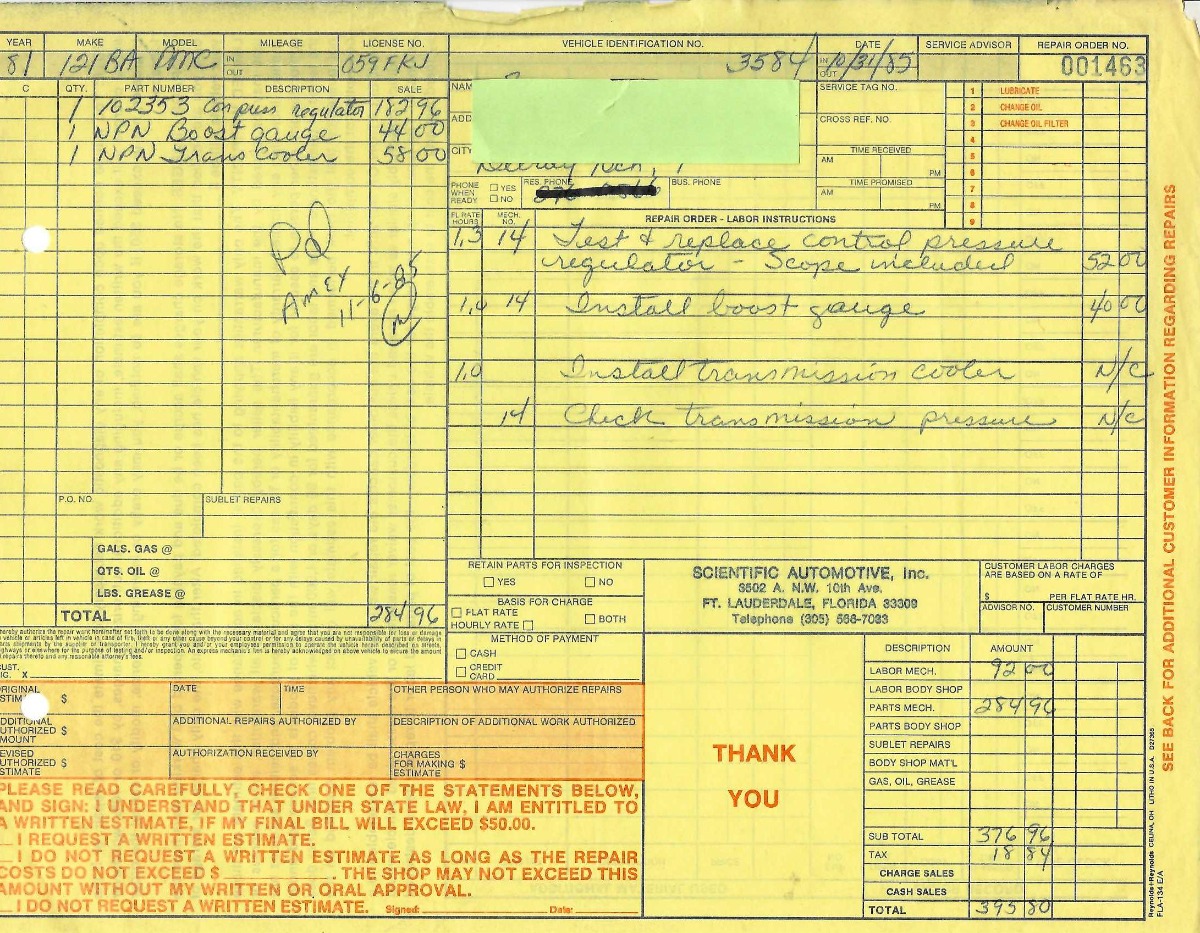 YEAR MAKE MODEL MILEAGE LICENSE NO. VEHICLE IDENTIFICATION NO. DATE SERVICE ADVISOR REPAIR ORDER NO.
81 121 BA PMC IN OUT 659 FKJ 3584 IN OUT 10/31/85 001463
C QTY. PART NUMBER DESCRIPTION SALE
1 102353 Con press regulator 182 96
1 NPN Boost gauge 44 00
1 NPN Trans cooler 58 00
NAM
ADD
CITY
SERVICE TAG NO.
CROSS REF. NO.
TIME RECEIVED
AM PM
TIME PROMISED
AM PM
1 LUBRICATE
2 CHANGE OIL
3 CHANGE OIL FILTER
4
5
6
7
8
9
PHONE WHEN READY YES NO RES. PHONE BUS. PHONE
FL RATE HOURS MECH. NO. REPAIR ORDER - LABOR INSTRUCTIONS
1.3 14 Test & replace control pressure
regulator - Scope included 52 00
1.0 14 Install boost gauge 40 00
1.0 Install transmission cooler N/C
14 Check transmission pressure N/C
Pd
AMEX
11-6-85
P.O. NO. SUBLET REPAIRS
GALS. GAS @
QTS. OIL @
LBS. GREASE @
TOTAL 284 96
RETAIN PARTS FOR INSPECTION
YES NO
BASIS FOR CHARGE
FLAT RATE
HOURLY RATE BOTH
METHOD OF PAYMENT
CASH
CREDIT CARD
SCIENTIFIC AUTOMOTIVE, Inc.
3502 A. N.W. 10th Ave.
FT. LAUDERDALE, FLORIDA 33309
Telephone (305) 566-7083
CUSTOMER LABOR CHARGES
ARE BASED ON A RATE OF
$ PER FLAT RATE HR.
ADVISOR NO. CUSTOMER NUMBER
ereby authorize the repair work hereinafter set forth to be done along with the necessary material and agree that you are not responsible for loss or damage
UST.
IG. X
RIGINAL ESTIM $ DATE TIME OTHER PERSON WHO MAY AUTHORIZE REPAIRS
DDITIONAL UTHORIZED $ MOUNT ADDITIONAL REPAIRS AUTHORIZED BY DESCRIPTION OF ADDITIONAL WORK AUTHORIZED
EVISED UTHORIZED $ STIMATE AUTHORIZATION RECEIVED BY CHARGES FOR MAKING $ ESTIMATE
PLEASE READ CAREFULLY, CHECK ONE OF THE STATEMENTS BELOW,
AND SIGN: I UNDERSTAND THAT UNDER STATE LAW, I AM ENTITLED TO
A WRITTEN ESTIMATE, IF MY FINAL BILL WILL EXCEED $50.00.
I REQUEST A WRITTEN ESTIMATE.
I DO NOT REQUEST A WRITTEN ESTIMATE AS LONG AS THE REPAIR
COSTS DO NOT EXCEED $ . THE SHOP MAY NOT EXCEED THIS
AMOUNT WITHOUT MY WRITTEN OR ORAL APPROVAL.
I DO NOT REQUEST A WRITTEN ESTIMATE. Signed: Date:
THANK
YOU
DESCRIPTION AMOUNT
LABOR MECH. 92 00
LABOR BODY SHOP
PARTS MECH. 284 96
PARTS BODY SHOP
SUBLET REPAIRS
BODY SHOP MAT'L
GAS, OIL, GREASE
SUB TOTAL 376 96
TAX 18 84
CHARGE SALES
CASH SALES
TOTAL 395 80
SEE BACK FOR ADDITIONAL CUSTOMER INFORMATION REGARDING REPAIRS
Reynolds+Reynolds CELINA, OH LITHO IN U.S.A.
FLA-134 E/A